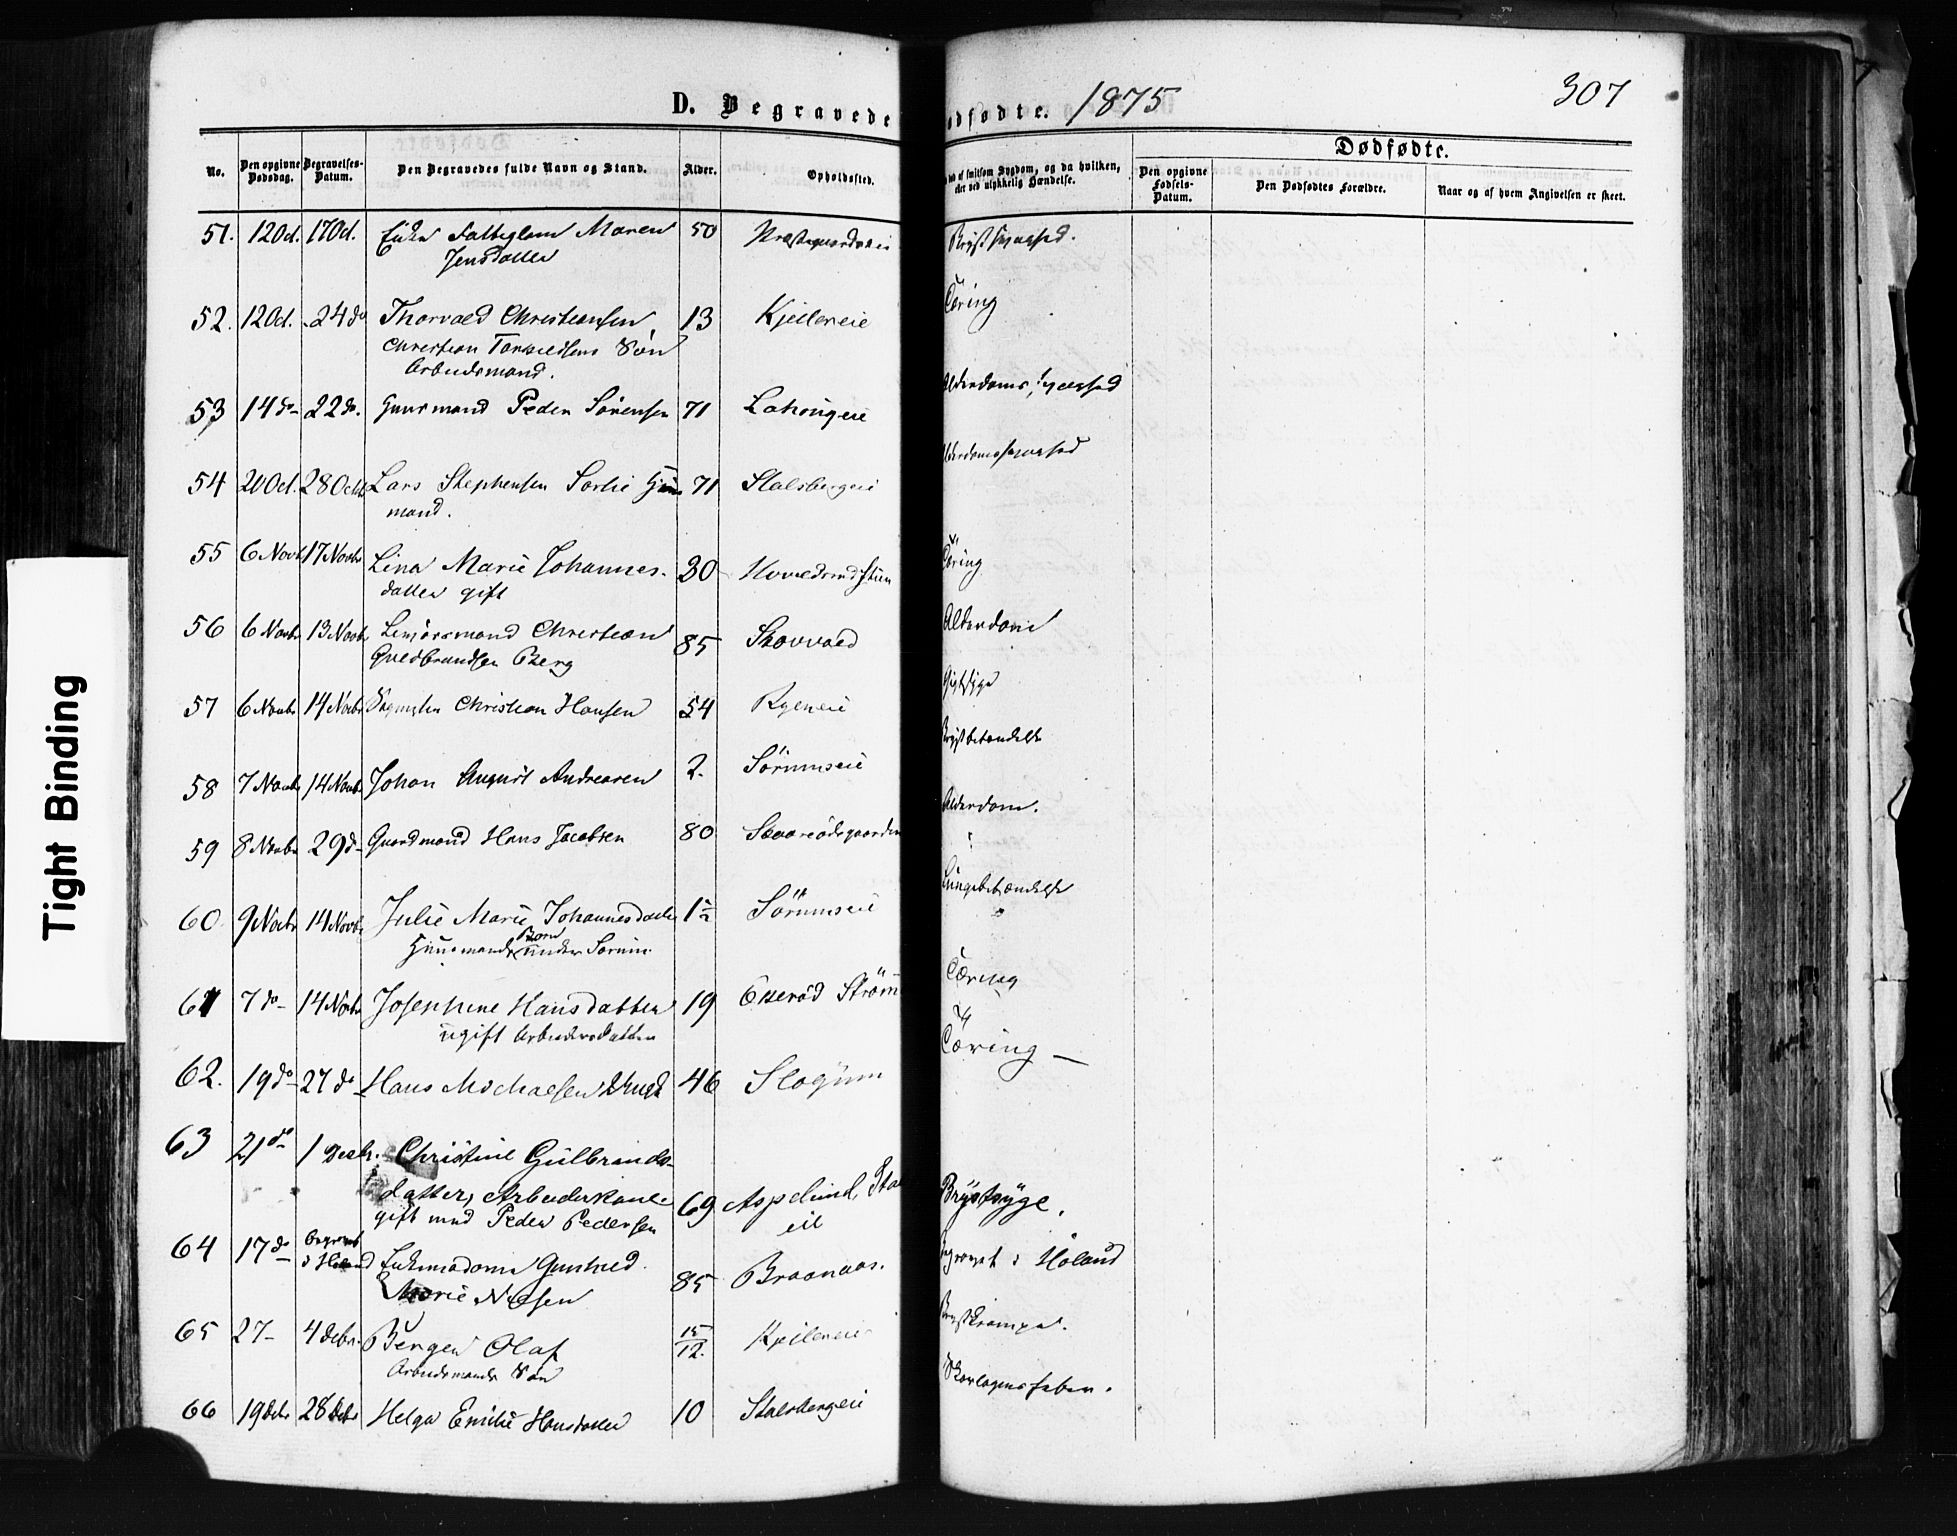 D. Begravede
ødfødte. 1875
307
Dødfødte.
No.
Den opgivne Dødsdag.
Begravelses-Datum.
Den Begravedes fulde Navn og Stand.
Alder.
Opholdssted.
af smitsom Sygdom, og da hvilken,
eller ved ulykkelig Hændelse.
Den opgivne Fødsels-Datum.
Den Dødfødtes Forældre.
Naar og af hvem Angivelsen er skeet.
51. 12 Oct. 17 Oct. Enke Maren 50
Jensdatter
52. 12 Oct. 24 do Thorvald Christiansen 13 Kjellereie Tæring
Christian Søn
Arbeidsmand.
53 14 do 22 do. Huusmand Peder Sørensen 71 Alderdomssvaghed
54 20 Oct. 28 Octb Lars Stephensen Huus 71 Stalsbergeie Alderdomssvaghed
mand.
55 6 Novb 17 Novbr Lina Marie Johannes- 30 Tæring
datter gift
56 6 Novbr 13 Novbr Christian 85 Skovvald Alderdom
Guldbrandsen Berg
57 6 Novbr 14 Novbr Christian Hansen 54 Ryeneie Gigtsyge
58 7 Novbr 14 Novbr Johan August Andreasen 2. Sørumseie Brystbetændelse
59 8 Novbr 29 do Gaardmand Hans Jacobsen 80 Alderdom.
60 9 Novbr 14 Novbr Julie Marie Johannesdatter 1½ Sørumseie Lungebetændelse
Huusmands Barn under Sørum.
61 7 do 14 Novbr Josephine Hansdatter 19 Strøm Tæring
ugift Arbeidersdatter
62. 19 do 27 do Hans Michaelsen 46 Slogum Tæring —
63 21 do 1 Decbr. Christine Gulbrands-
datter, Arbeiderkone 69 Aspelund, Brystsyge.
gift med Peder Pedersen eie
64 17 do Begravet
i Høland Gunhild 85 Braanaas. Begravet i Høland
Marie Nilsen
65 27 – 4 Debr. Berger Olaf 15/12. Kjellereie Brystkrampe.
Arbeidsmands Søn
66 19 Debr 28 Debr Helga Emilie Hansdatter 10 Stalsbergeie Skarlagensfeber.
Tight Binding